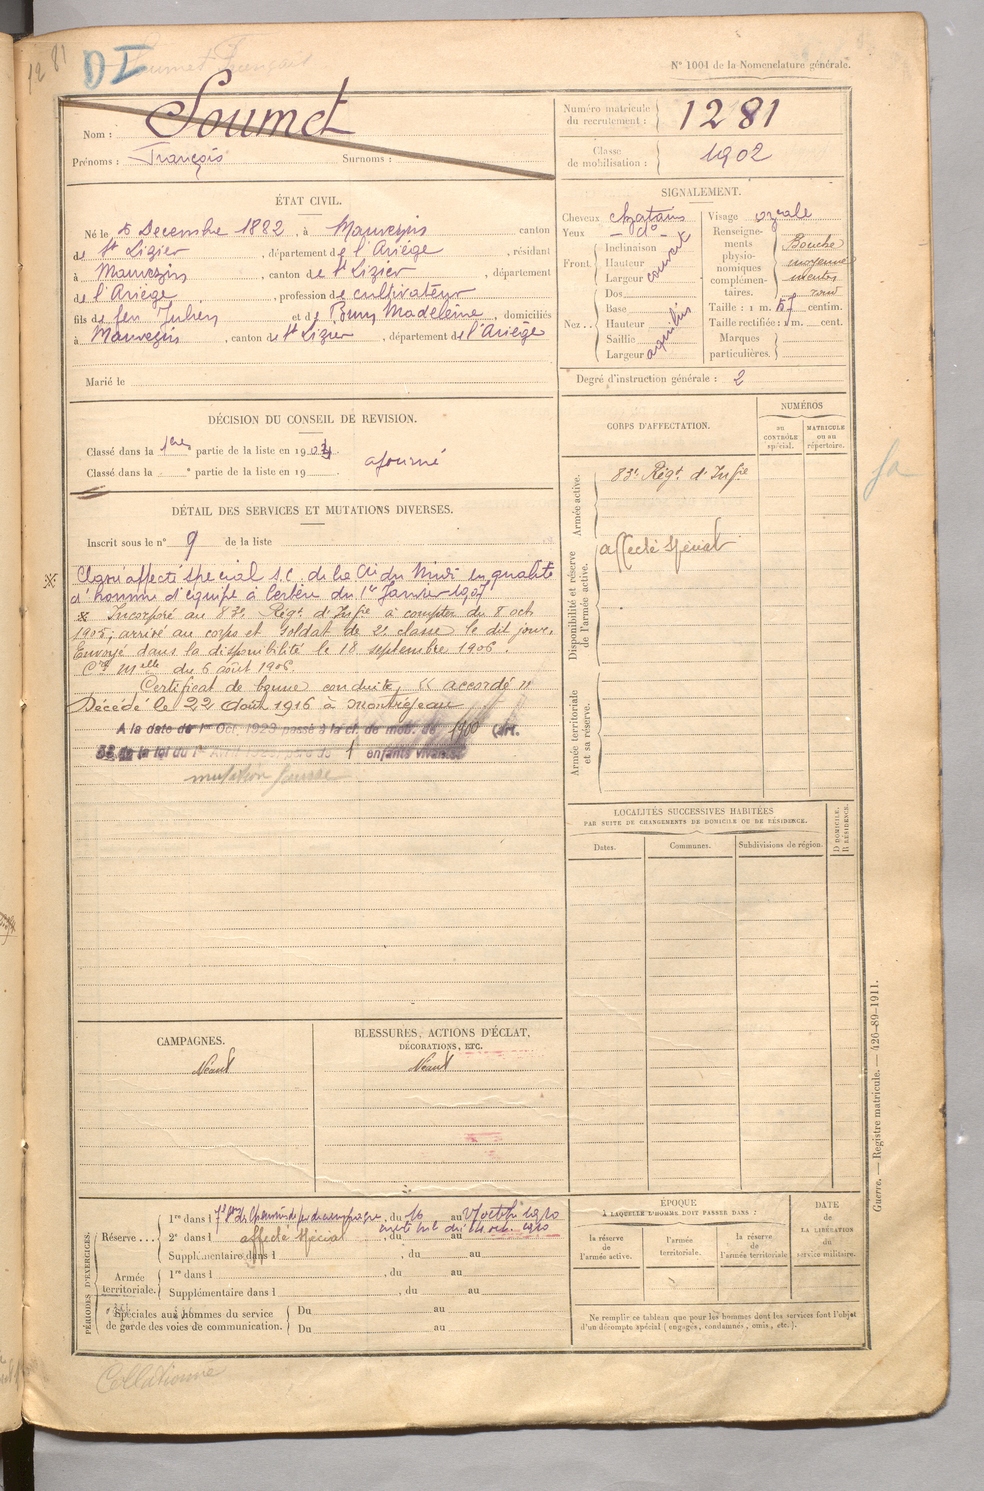 1281
DI
Soumet Français
N° 1001 de la Nomenclature générale.
Nom : Soumet
Prénoms : François Surnoms :
Numéro matricule du recrutement : 1281
Classe de mobilisation : 1902
ÉTAT CIVIL.
Né le 5 Décembre 1882, à Mauvezin canton
de St Lizier, département de l'Ariège, résidant
à Mauvezin, canton de St Lizier, département
de l'Ariège, profession de cultivateur
fils de feu Julien et de Madeleine, domiciliés
à Mauvezin, canton de St Lizier, département de l'Ariège
Marié le
SIGNALEMENT.
Cheveux chatains
Yeux - do -
Front Inclinaison Hauteur Largeur couvert
Nez Dos Base Hauteur Saillie Largeur aquilin
Visage ovale
Renseignements physionomiques complémentaires. Bouche moyenne menton rond
Taille : 1 m. 57 centim.
Taille rectifiée : 1 m. cent.
Marques particulières.
Degré d'instruction générale : 2
DÉCISION DU CONSEIL DE REVISION.
Classé dans la 1re partie de la liste en 1904
Classé dans la ° partie de la liste en 19
ajourné
DÉTAIL DES SERVICES ET MUTATIONS DIVERSES.
Inscrit sous le n° 9 de la liste
Classé affecté spécial S.C. de la Cie du Midi en qualité
d'homme d'équipe à du 1er Janvier 1907
Incorporé au 83e Régt d'Infie à compter du 8 oct
1905; arrivé au corps et soldat de 2e classe le dit jour.
Envoyé dans la disponibilité le 18 septembre 1906.
Cre Melle du 6 août 1906.
Certificat de bonne conduite, « accordé »
Décédé le 22 Août 1916 à Montréjeau
A la date du 1er Oct. 1923 passé à la cl. de mob. de 1900 (art.
58 de la loi du 1er Avril père de 1 enfants vivants
mutation fausse
CORPS D'AFFECTATION.
NUMÉROS
AU CONTRÔLE spécial.
MATRICULE ou au répertoire.
Armée active.
83e Régt d'Infie
Disponibilité et réserve de l'armée active.
affecté spécial
Armée territoriale et sa réserve.
LOCALITÉS SUCCESSIVES HABITÉES
PAR SUITE DE CHANGEMENTS DE DOMICILE OU DE RÉSIDENCE.
Dates. Communes. Subdivisions de région.
D DOMICILE. R RÉSIDENCE.
CAMPAGNES.
Néant
BLESSURES, ACTIONS D'ÉCLAT,
DÉCORATIONS, ETC.
Néant
PÉRIODES D'EXERCICES.
Réserve...
1re dans l de Chemins de fer de campagne, du 16 au 27 octobre 1910
2e dans l affecté spécial, du au
Supplémentaire dans l, du au
Armée territoriale.
1re dans l, du au
Supplémentaire dans l, du au
Spéciales aux hommes du service
de garde des voies de communication.
Du au
Du au
ÉPOQUE
À LAQUELLE L'HOMME DOIT PASSER DANS :
la réserve de l'armée active.
l'armée territoriale.
la réserve de l'armée territoriale
DATE de LA LIBÉRATION du service militaire.
Ne remplir ce tableau que pour les hommes dont les services font l'objet
d'un décompte spécial (engagés, condamnés, omis, etc.).
Guerre. — Registre matricule. — 426-89-1911.
Collationné